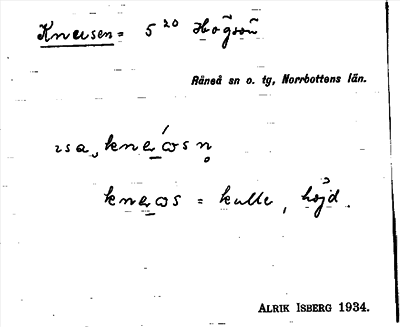 Kneusen = 5 20 Högsön
Råneå sn o. tg, Norrbottens län.
= kulle, höjd.
ALRIK ISBERG 1934.